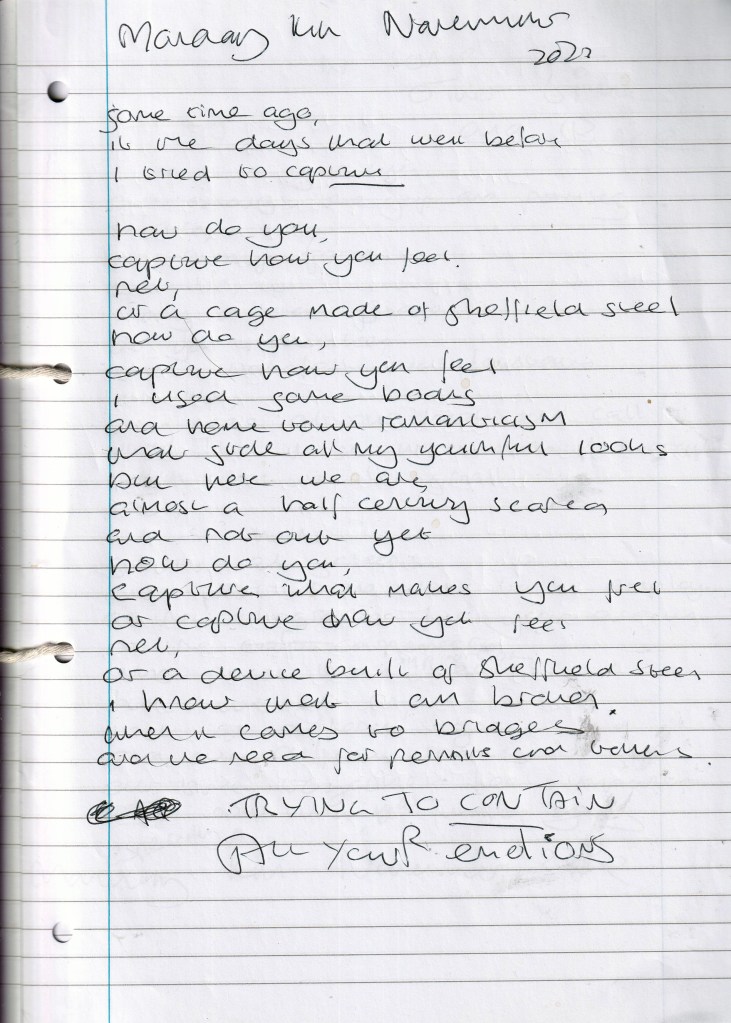 Monday November
2022
some time ago,
in the days that went before
I tried to capture
how do you,
capture how you feel.
net,
or a cage made of Sheffield steel
how do you,
capture how you feel
I used some books
and home romanticism
that stole all my youthful looks
but here we are,
almost a half century scored
and not out yet
how do you,
capture what makes you feel
or capture how you feel
net,
or a device built of Sheffield steel
I know that I am broken.
when it comes to bridges
and the need for permits and
TRYING TO CONTAIN
All your emotions